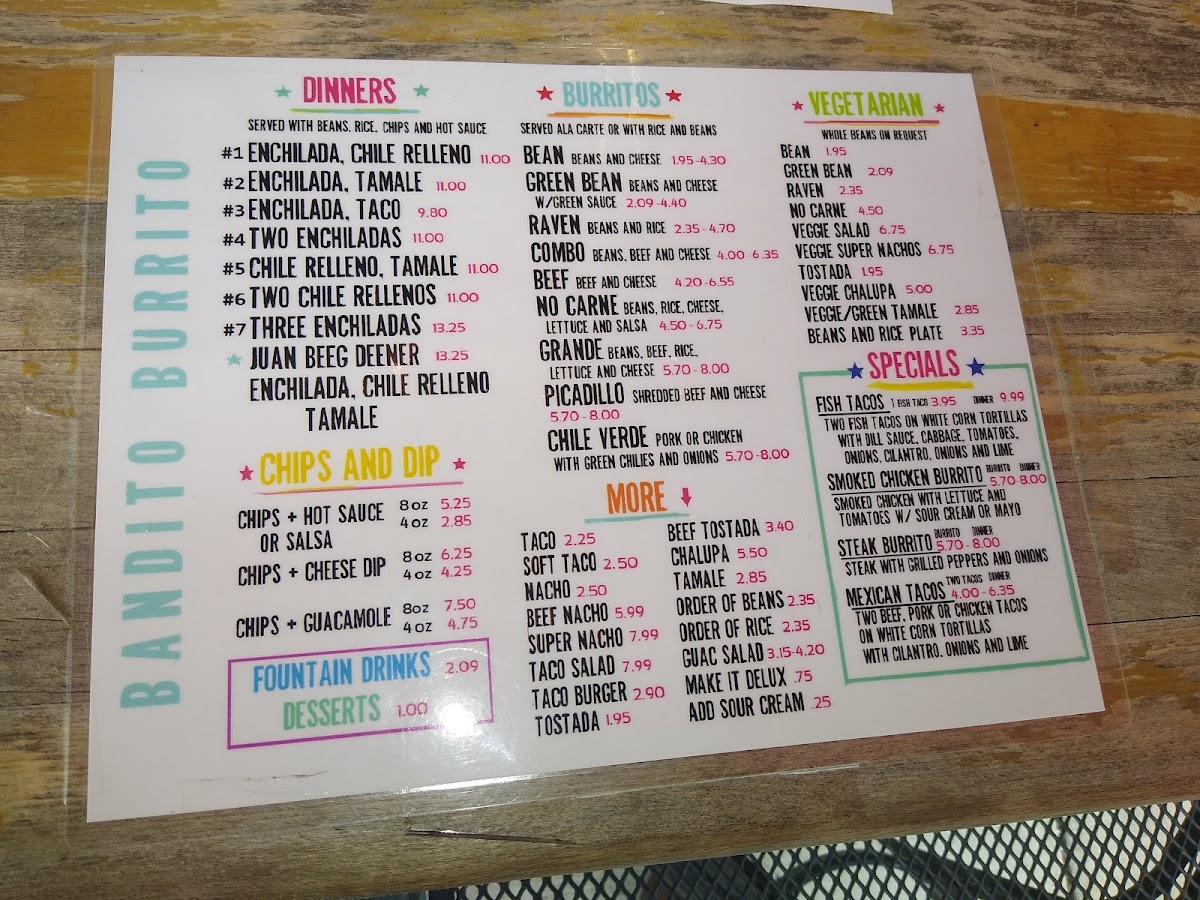 BANDITO BURRITO
DINNERS
SERVED WITH BEANS, RICE, CHIPS AND HOT SAUCE
#1 ENCHILADA, CHILE RELLENO 11.00
#2 ENCHILADA, TAMALE 11.00
#3 ENCHILADA, TACO 9.80
#4 TWO ENCHILADAS 11.00
#5 CHILE RELLENO, TAMALE 11.00
#6 TWO CHILE RELLENOS 11.00
#7 THREE ENCHILADAS 13.25
JUAN BEEG DEENER 13.25
ENCHILADA, CHILE RELLENO
TAMALE
CHIPS AND DIP
CHIPS + HOT SAUCE 8 oz 5.25
OR SALSA 4 oz 2.85
CHIPS + CHEESE DIP 8 oz 6.25
4 oz 4.25
CHIPS + GUACAMOLE 8oz 7.50
4 oz 4.75
FOUNTAIN DRINKS 2.09
DESSERTS 1.00
BURRITOS
SERVED ALA CARTE OR WITH RICE AND BEANS
BEAN BEANS AND CHEESE 1.95-4.30
GREEN BEAN BEANS AND CHEESE
W/GREEN SAUCE 2.09-4.40
RAVEN BEANS AND RICE 2.35-4.70
COMBO BEANS, BEEF AND CHEESE 4.00-6.35
BEEF BEEF AND CHEESE 4.20-6.55
NO CARNE BEANS, RICE, CHEESE,
LETTUCE AND SALSA 4.50-6.75
GRANDE BEANS, BEEF, RICE,
LETTUCE AND CHEESE 5.70-8.00
PICADILLO SHREDDED BEEF AND CHEESE
5.70-8.00
CHILE VERDE PORK OR CHICKEN
WITH GREEN CHILIES AND ONIONS 5.70-8.00
MORE
TACO 2.25
SOFT TACO 2.50
NACHO 2.50
BEEF NACHO 5.99
SUPER NACHO 7.99
TACO SALAD 7.99
TACO BURGER 2.90
TOSTADA 1.95
BEEF TOSTADA 3.40
CHALUPA 5.50
TAMALE 2.85
ORDER OF BEANS 2.35
ORDER OF RICE 2.35
GUAC SALAD 3.15-4.20
MAKE IT DELUX .75
ADD SOUR CREAM .25
VEGETARIAN
WHOLE BEANS ON REQUEST
BEAN 1.95
GREEN BEAN 2.09
RAVEN 2.35
NO CARNE 4.50
VEGGIE SALAD 6.75
VEGGIE SUPER NACHOS 6.75
TOSTADA 1.95
VEGGIE CHALUPA 5.00
VEGGIE/GREEN TAMALE 2.85
BEANS AND RICE PLATE 3.35
SPECIALS
FISH TACOS 1 FISH TACO 3.95 DINNER 9.99
TWO FISH TACOS ON WHITE CORN TORTILLAS
WITH DILL SAUCE, CABBAGE, TOMATOES,
ONIONS, CILANTRO, ONIONS AND LIME
SMOKED CHICKEN BURRITO BURRITO DINNER 5.70-8.00
SMOKED CHICKEN WITH LETTUCE AND
TOMATOES W/ SOUR CREAM OR MAYO
STEAK BURRITO BURRITO DINNER 5.70-8.00
STEAK WITH GRILLED PEPPERS AND ONIONS
MEXICAN TACOS TWO TACOS DINNER 4.00-6.35
TWO BEEF, PORK OR CHICKEN TACOS
ON WHITE CORN TORTILLAS
WITH CILANTRO, ONIONS AND LIME